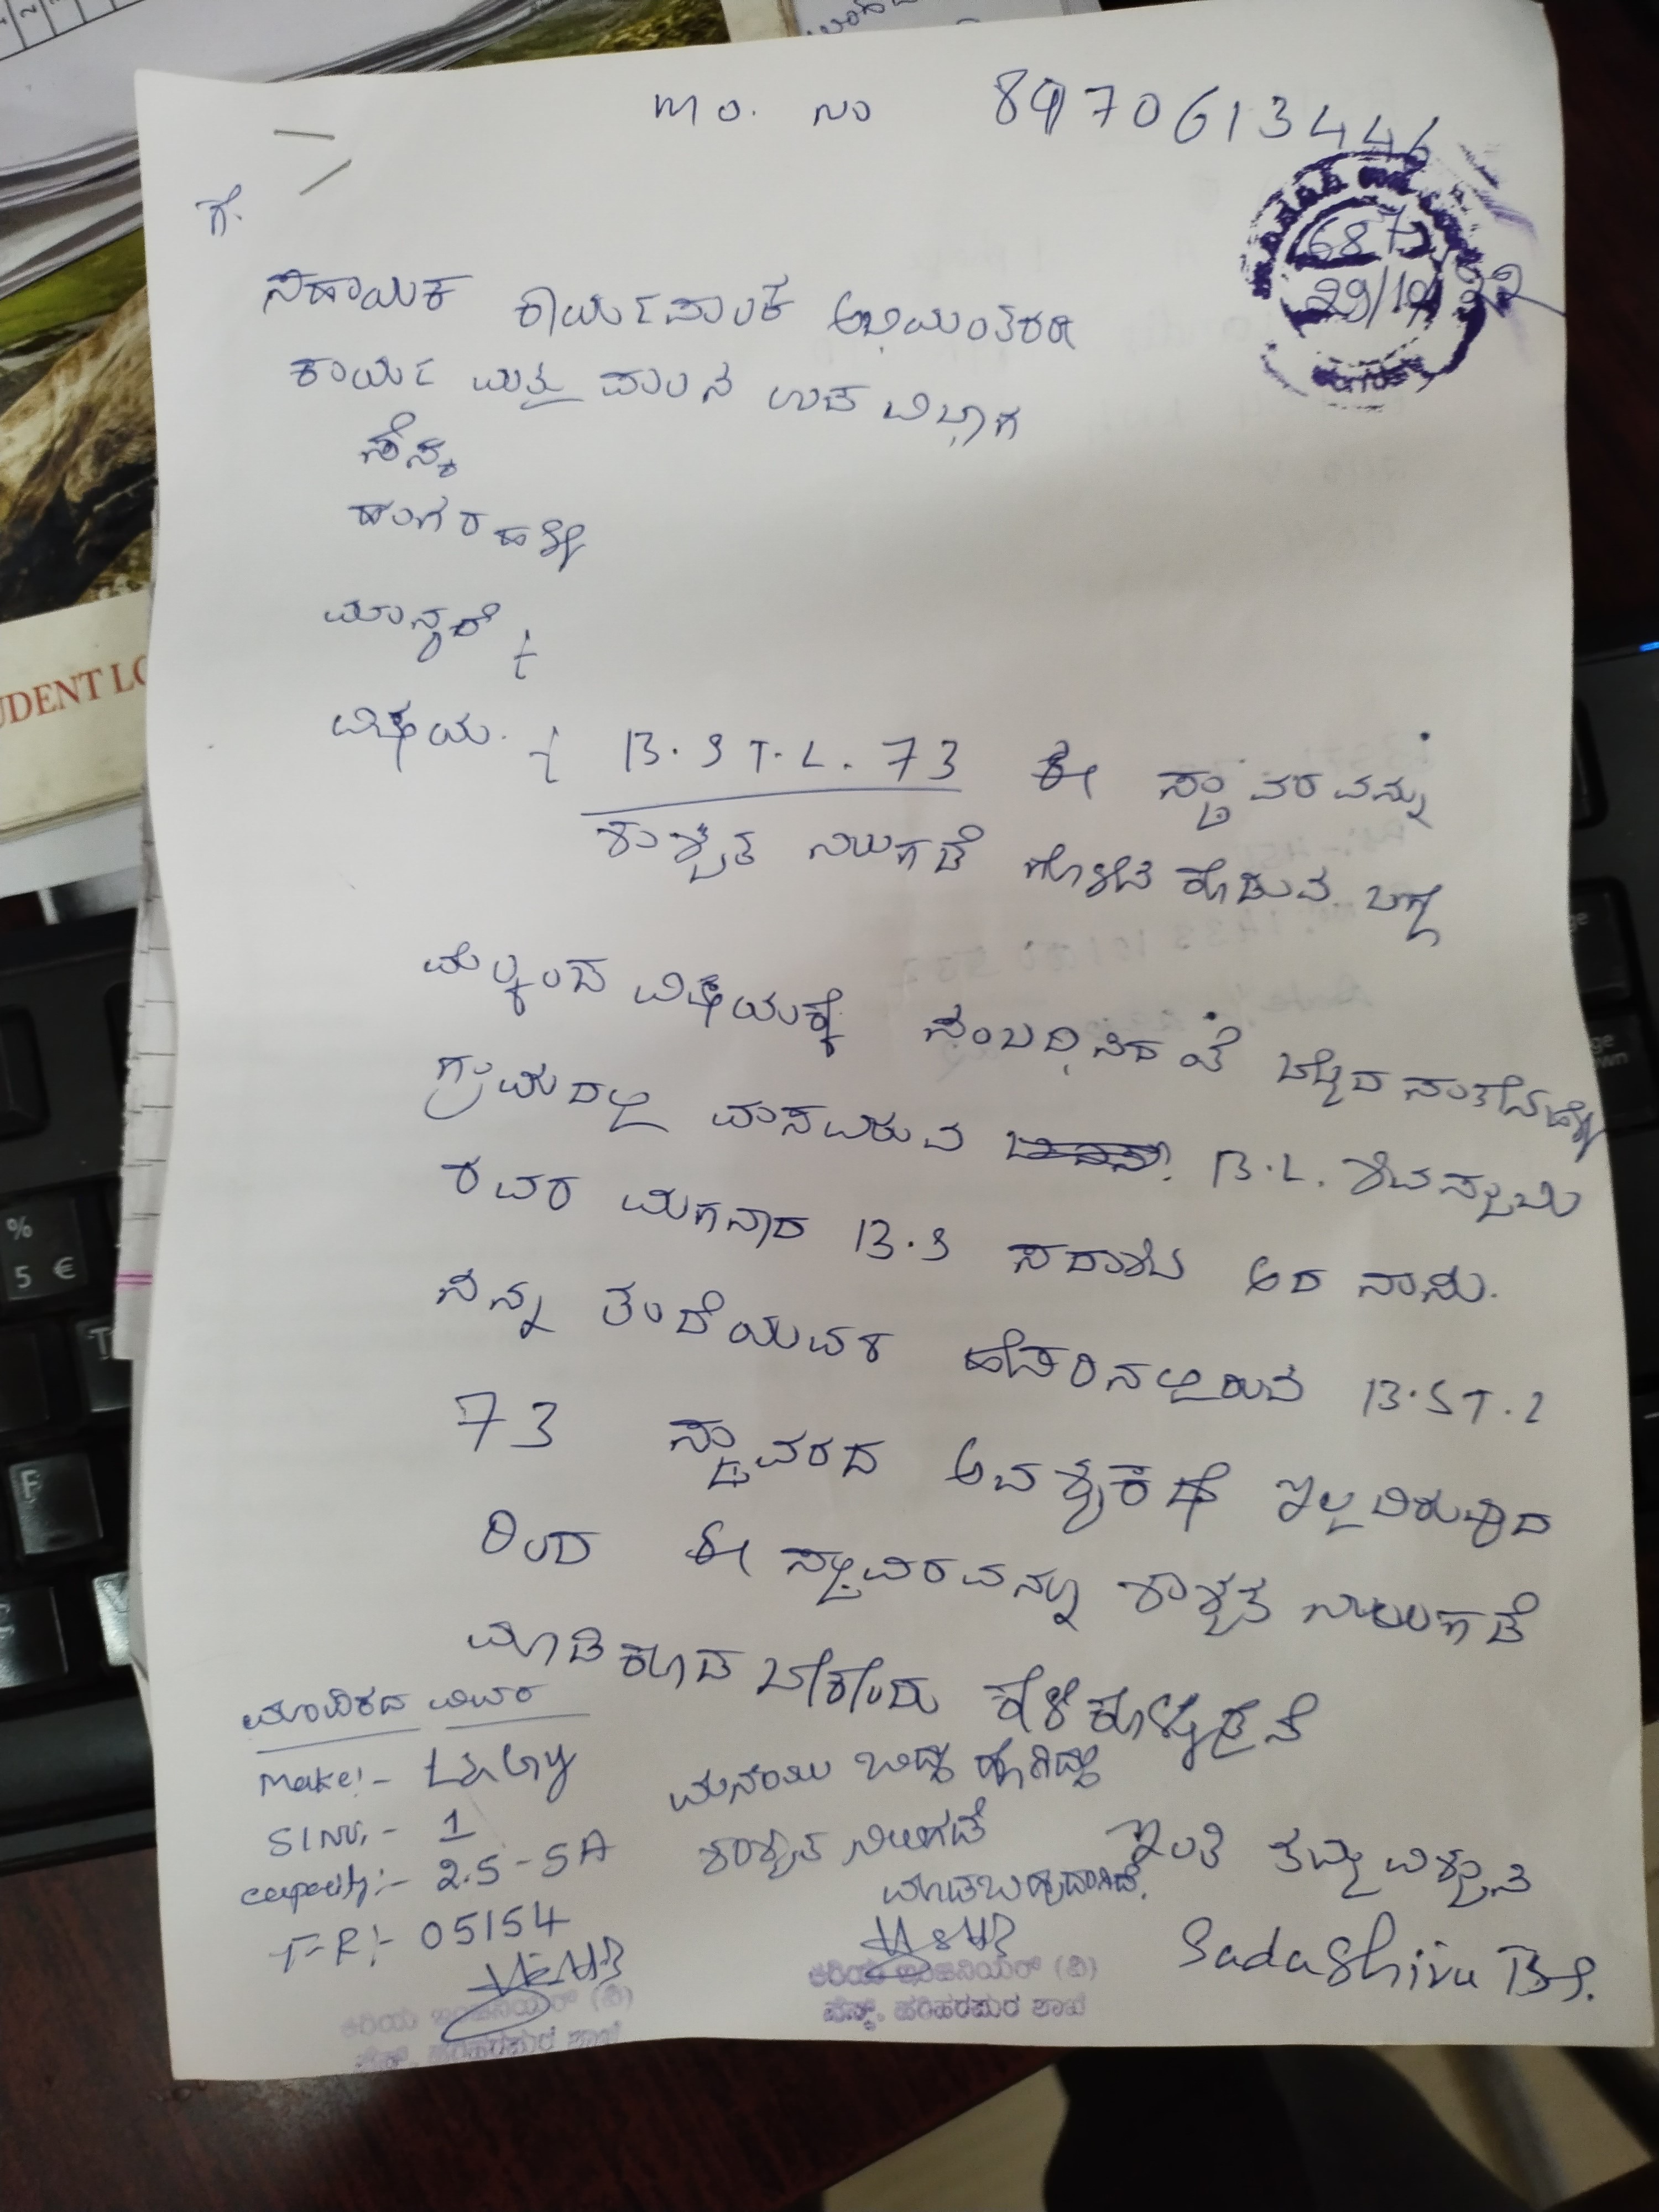 mo. ನಂ 8970613446
ಗೆ.
687
29/10/22
ಸಹಾಯಕ ಕಾರ್ಯಪಾಲಕ ಅಭಿಯಂತರರು
ಕಾರ್ಯ ಮತ್ತು ಪಾಲನ ಉಪ ವಿಭಾಗ
ಸೆಸ್ಕ
ಹಂಗರಹಳ್ಳಿ
ಮಾನ್ಯರೆ :
ವಿಷಯ :- B.S T.L. 73 ಈ ಸ್ಥಾವರವನ್ನು
ಶಾಶ್ವತ ನಿಲುಗಡೆ ಗೊಳಿಸಿ ಕೊಡುವ ಬಗ್ಗೆ
ಮೇಲ್ಕಂಡ ವಿಷಯಕ್ಕೆ ಸಂಬಧಿಸಿದಂತೆ
ಗ್ರಾಮದಲ್ಲಿ ವಾಸವಿರುವ B.L. ಶಿವಸ್ವಾಮಿ
ರವರ ಮಗನಾದ B.S ಸದಾಶಿವ ಆದ ನಾನು.
ನನ್ನ ತಂದೆಯವರ ಹೆಸರಿನಲ್ಲಿರುವ B.ST.L
73 ಸ್ಥಾವರದ ಅವಶ್ಯಕತೆ ಇಲ್ಲದಿರುವುದ
ರಿಂದ ಈ ಸ್ಥಾವರವನ್ನು ಶಾಶ್ವತ ನಿಲುಗಡೆ
ಮಾಡಿಕೊಡ ಬೇಕೆಂದು ಕೇಳಿಕೊಳ್ಳುತ್ತೇನೆ
ಮಾಪಕದ ವಿವರ
Make:-
Sl No:- 1
capacity:- 2.5-5A
F-R:- 05154
ಮನೆಯು ಬಿದ್ದು ಹೋಗಿದ್ದು
ಶಾಶ್ವತ ನಿಲುಗಡೆ
ಮಾಡಬಹುದಾಗಿದೆ.
ಇಂತಿ ತಮ್ಮ ವಿಶ್ವಾಸಿ
Sadashiva B S.
ಕಿರಿಯ ಇಂಜಿನಿಯರ್ (ವಿ)
ಸೆಸ್ಕ್, ಹರಿಹರಪುರ ಶಾಖೆ
ಕಿರಿಯ ಇಂಜಿನಿಯರ್ (ವಿ)
ಸೆಸ್ಕ್, ಹರಿಹರಪುರ ಶಾಖೆ